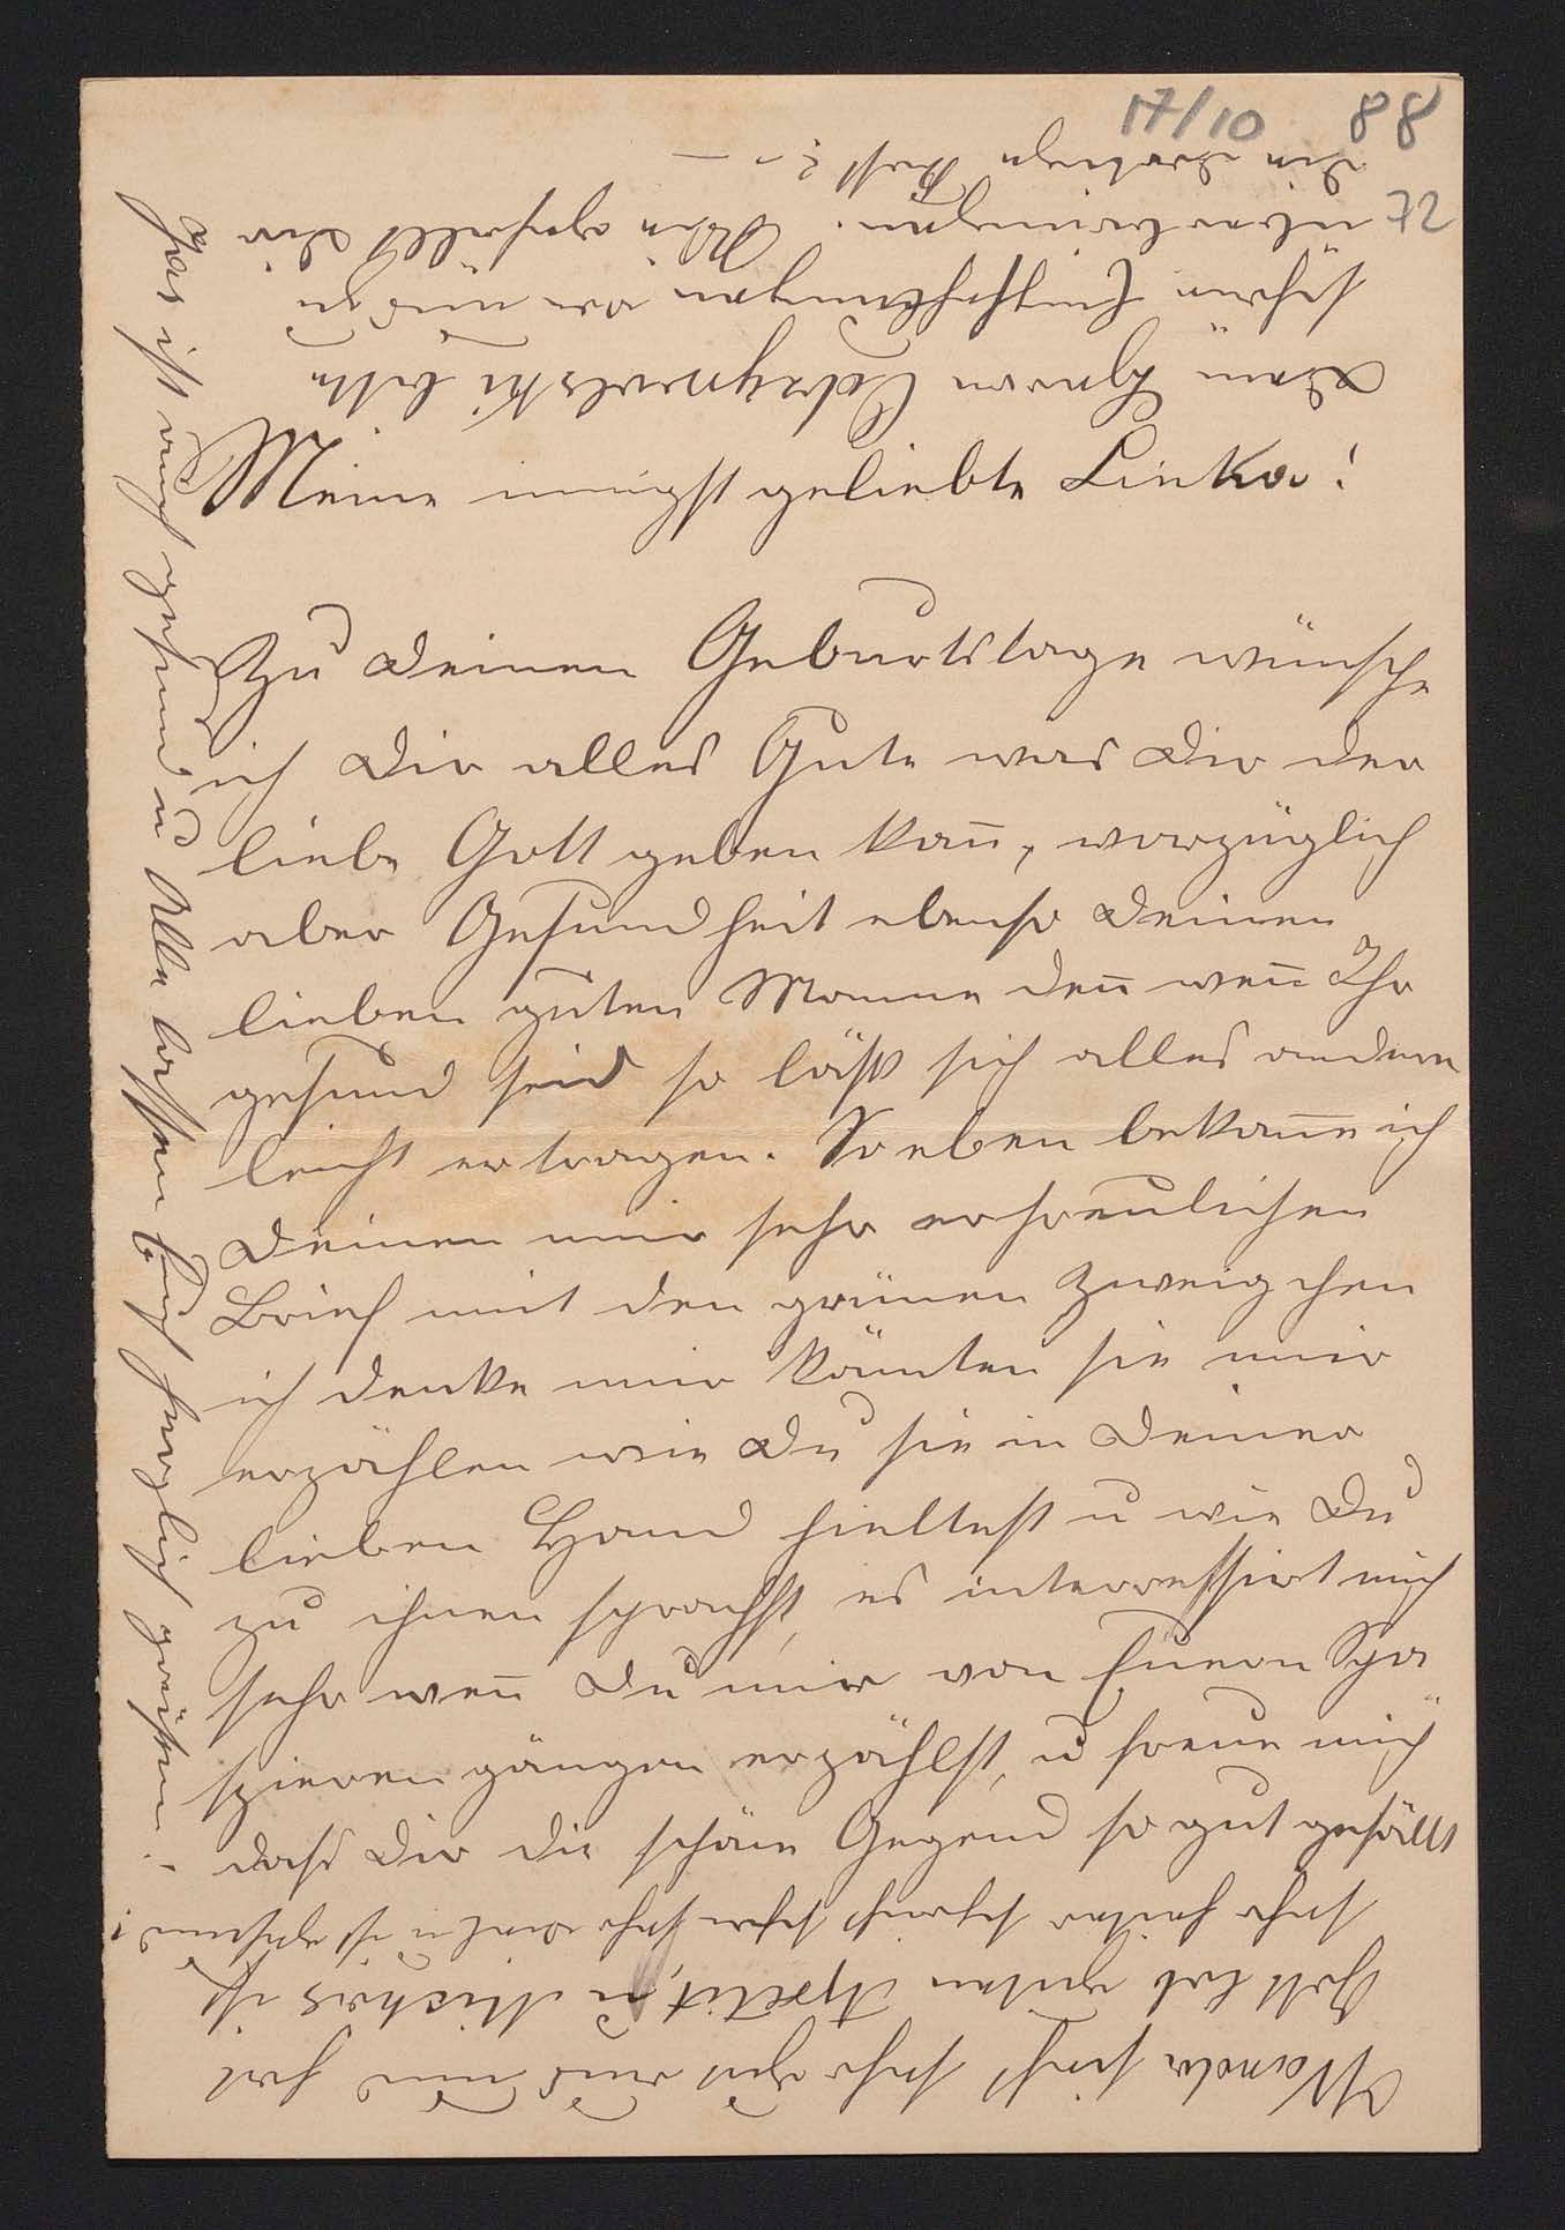 17/10 88
72
Meine innigst geliebte Linka!
Zu Deinen Geburtstage wünsche
ich Dir alles Gute was Dir der
liebe Gott geben kan̅, vorzüglich
aber Gesundheit ebenso Deinen
lieben guten Manne den̅ wen̅ Ihr
gesund seid so läßt sich alles andere
leicht ertragen. So eben bekam̅e ich
Deinen mir sehr erfreulichen
Brief mit den grünen Zweigchen
ich denke mir kön̅ten sie mir
erzählen wie Du sie in Deiner
lieben Hand hieltest u wie Du
zu ihnen sprachst, es interressirt mich
sehr wen̅ Du mir von Euern Spa
spierengängen erzählst, u freue mich
dass Dir die schöne Gegend so gut gefällt
Wanda sieht sehr gut aus und hat
Gott lob guten Apetit, u Mickos ist
sehr heiter schreit schon sehr u ist gesund!
Dem Herrn Odrzywolski bitte
schöne Empfehlungen von uns zu
überbringen. Wie gefällt Dir
die dortige Kost? –
Jas ist auch gesund, u Alle lassen Euch herzlich grüßen.